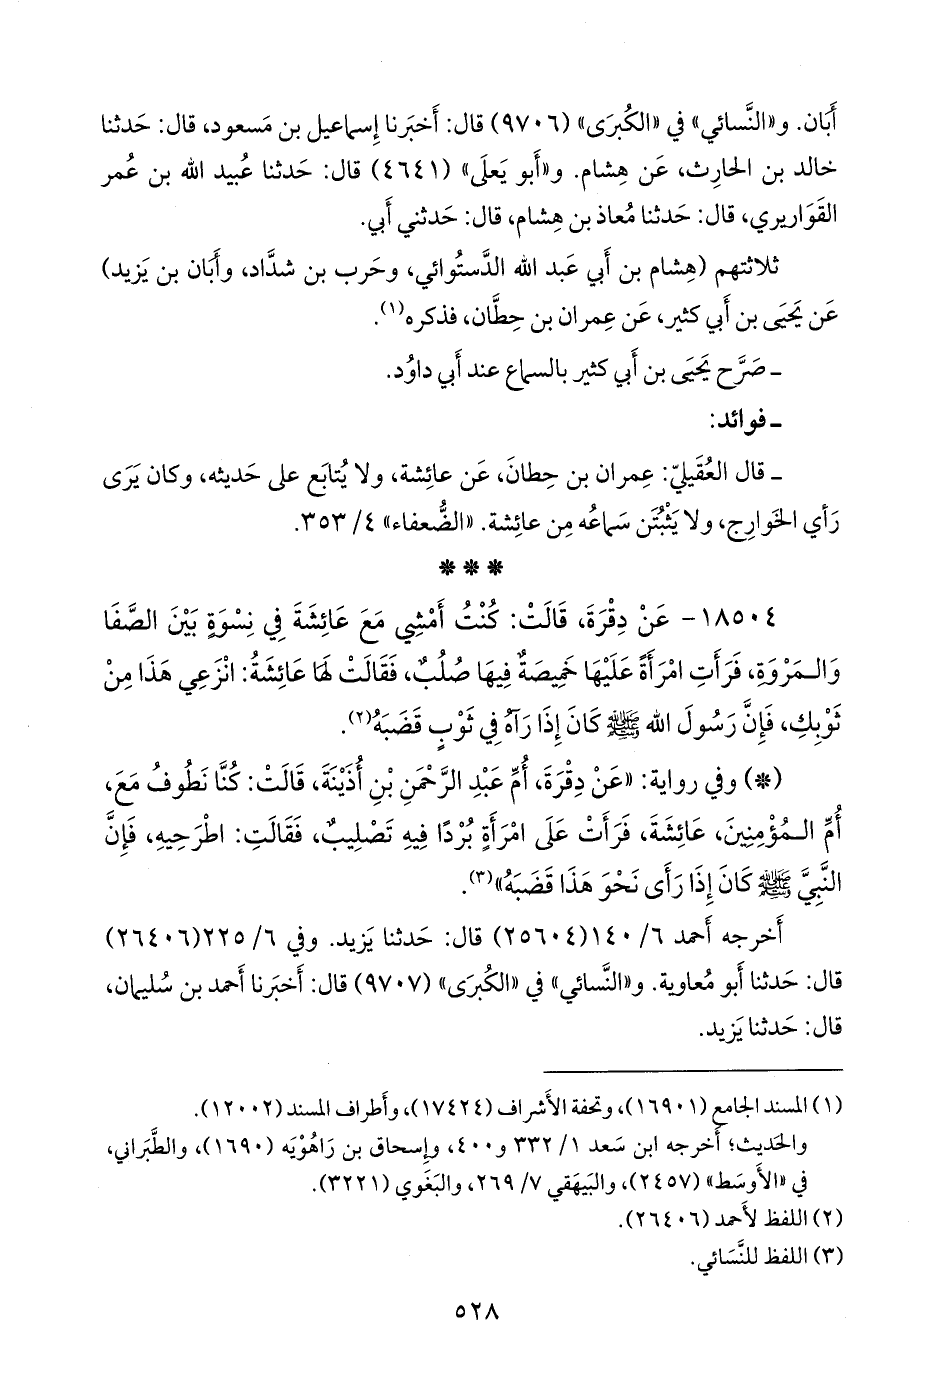 أَبَان. و«النَّسائي» في «الكُبرَى» (٩٧٠٦) قال: أَخبَرنا إِسماعيل بن مَسعود، قال: حَدثنا
خالد بن الحارِث، عَن هِشام. و«أَبو يَعلَى» (٤٦٤١) قال: حَدثنا عُبيد الله بن عُمر
القَوَاريري، قال: حَدثنا مُعاذ بن هِشام، قال: حَدثني أَبي.
ثلاثتهم (هِشام بن أَبي عَبد الله الدَّستُوائي، وحَرب بن شدَّاد، وأَبان بن يَزيد)
عَن يَحيَى بن أَبي كثير، عَن عِمران بن حِطَّان، فذكره(١).
ـ صَرَّح يَحيَى بن أَبي كثير بالسماع عند أَبي داوُد.
ـ فوائد:
ـ قال العُقَيليّ: عِمران بن حِطانَ، عَن عائِشة، ولا يُتابَع على حَديثه، وكان يَرَى
رَأي الخَوارِج، ولا يَثْبُتَن سَماعُه مِن عائِشة. «الضُّعفاء» ٤/ ٣٥٣.
* * *
١٨٥٠٤- عَنْ دِقْرَةَ، قَالَتْ: كُنْتُ أَمْشِي مَعَ عَائِشَةَ فِي نِسْوَةٍ بَيْنَ الصَّفَا
وَالـمَرْوَةِ، فَرَأَتِ امْرَأَةً عَلَيْهَا خَمِيصَةٌ فِيهَا صُلُبٌ، فَقَالَتْ لَهَا عَائِشَةُ: انْزَعِي هَذَا مِنْ
ثَوْبِكِ، فَإِنَّ رَسُولَ الله ﷺ كَانَ إِذَا رَآهُ فِي ثَوْبٍ قَضَبَهُ(٢).
(*) وفي رواية: «عَنْ دِقْرَةَ، أُمِّ عَبْدِ الرَّحْمَنِ بْنِ أُذَيْنَةَ، قَالَتْ: كُنَّا نَطُوفُ مَعَ،
أُمِّ الـمُؤْمِنِينَ، عَائِشَةَ، فَرَأَتْ عَلَى امْرَأَةٍ بُرْدًا فِيهِ تَصْلِيبٌ، فَقَالَتِ: اطْرَحِيهِ، فَإِنَّ
النَّبِيَّ ﷺ كَانَ إِذَا رَأَى نَحْوَ هَذَا قَضَبَهُ»(٣).
أَخرجه أَحمد ٦/ ١٤٠(٢٥٦٠٤) قال: حَدثنا يَزيد. وفي ٦/ ٢٢٥(٢٦٤٠٦)
قال: حَدثنا أَبو مُعاوية. و«النَّسائي» في «الكُبرَى» (٩٧٠٧) قال: أَخبَرنا أَحمد بن سُليمان،
قال: حَدثنا يَزيد.
(١) المسند الجامع (١٦٩٠١)، وتحفة الأَشراف (١٧٤٢٤)، وأَطراف المسند (١٢٠٠٢).
والحَديث؛ أَخرجه ابن سَعد ١/ ٣٣٢ و٤٠٠، وإِسحاق بن رَاهُوْيَه (١٦٩٠)، والطَّبَراني،
في «الأَوسَط» (٢٤٥٧)، والبَيهَقي ٧/ ٢٦٩، والبَغَوي (٣٢٢١).
(٢) اللفظ لأَحمد (٢٦٤٠٦).
(٣) اللفظ للنَّسَائي.
٥٢٨